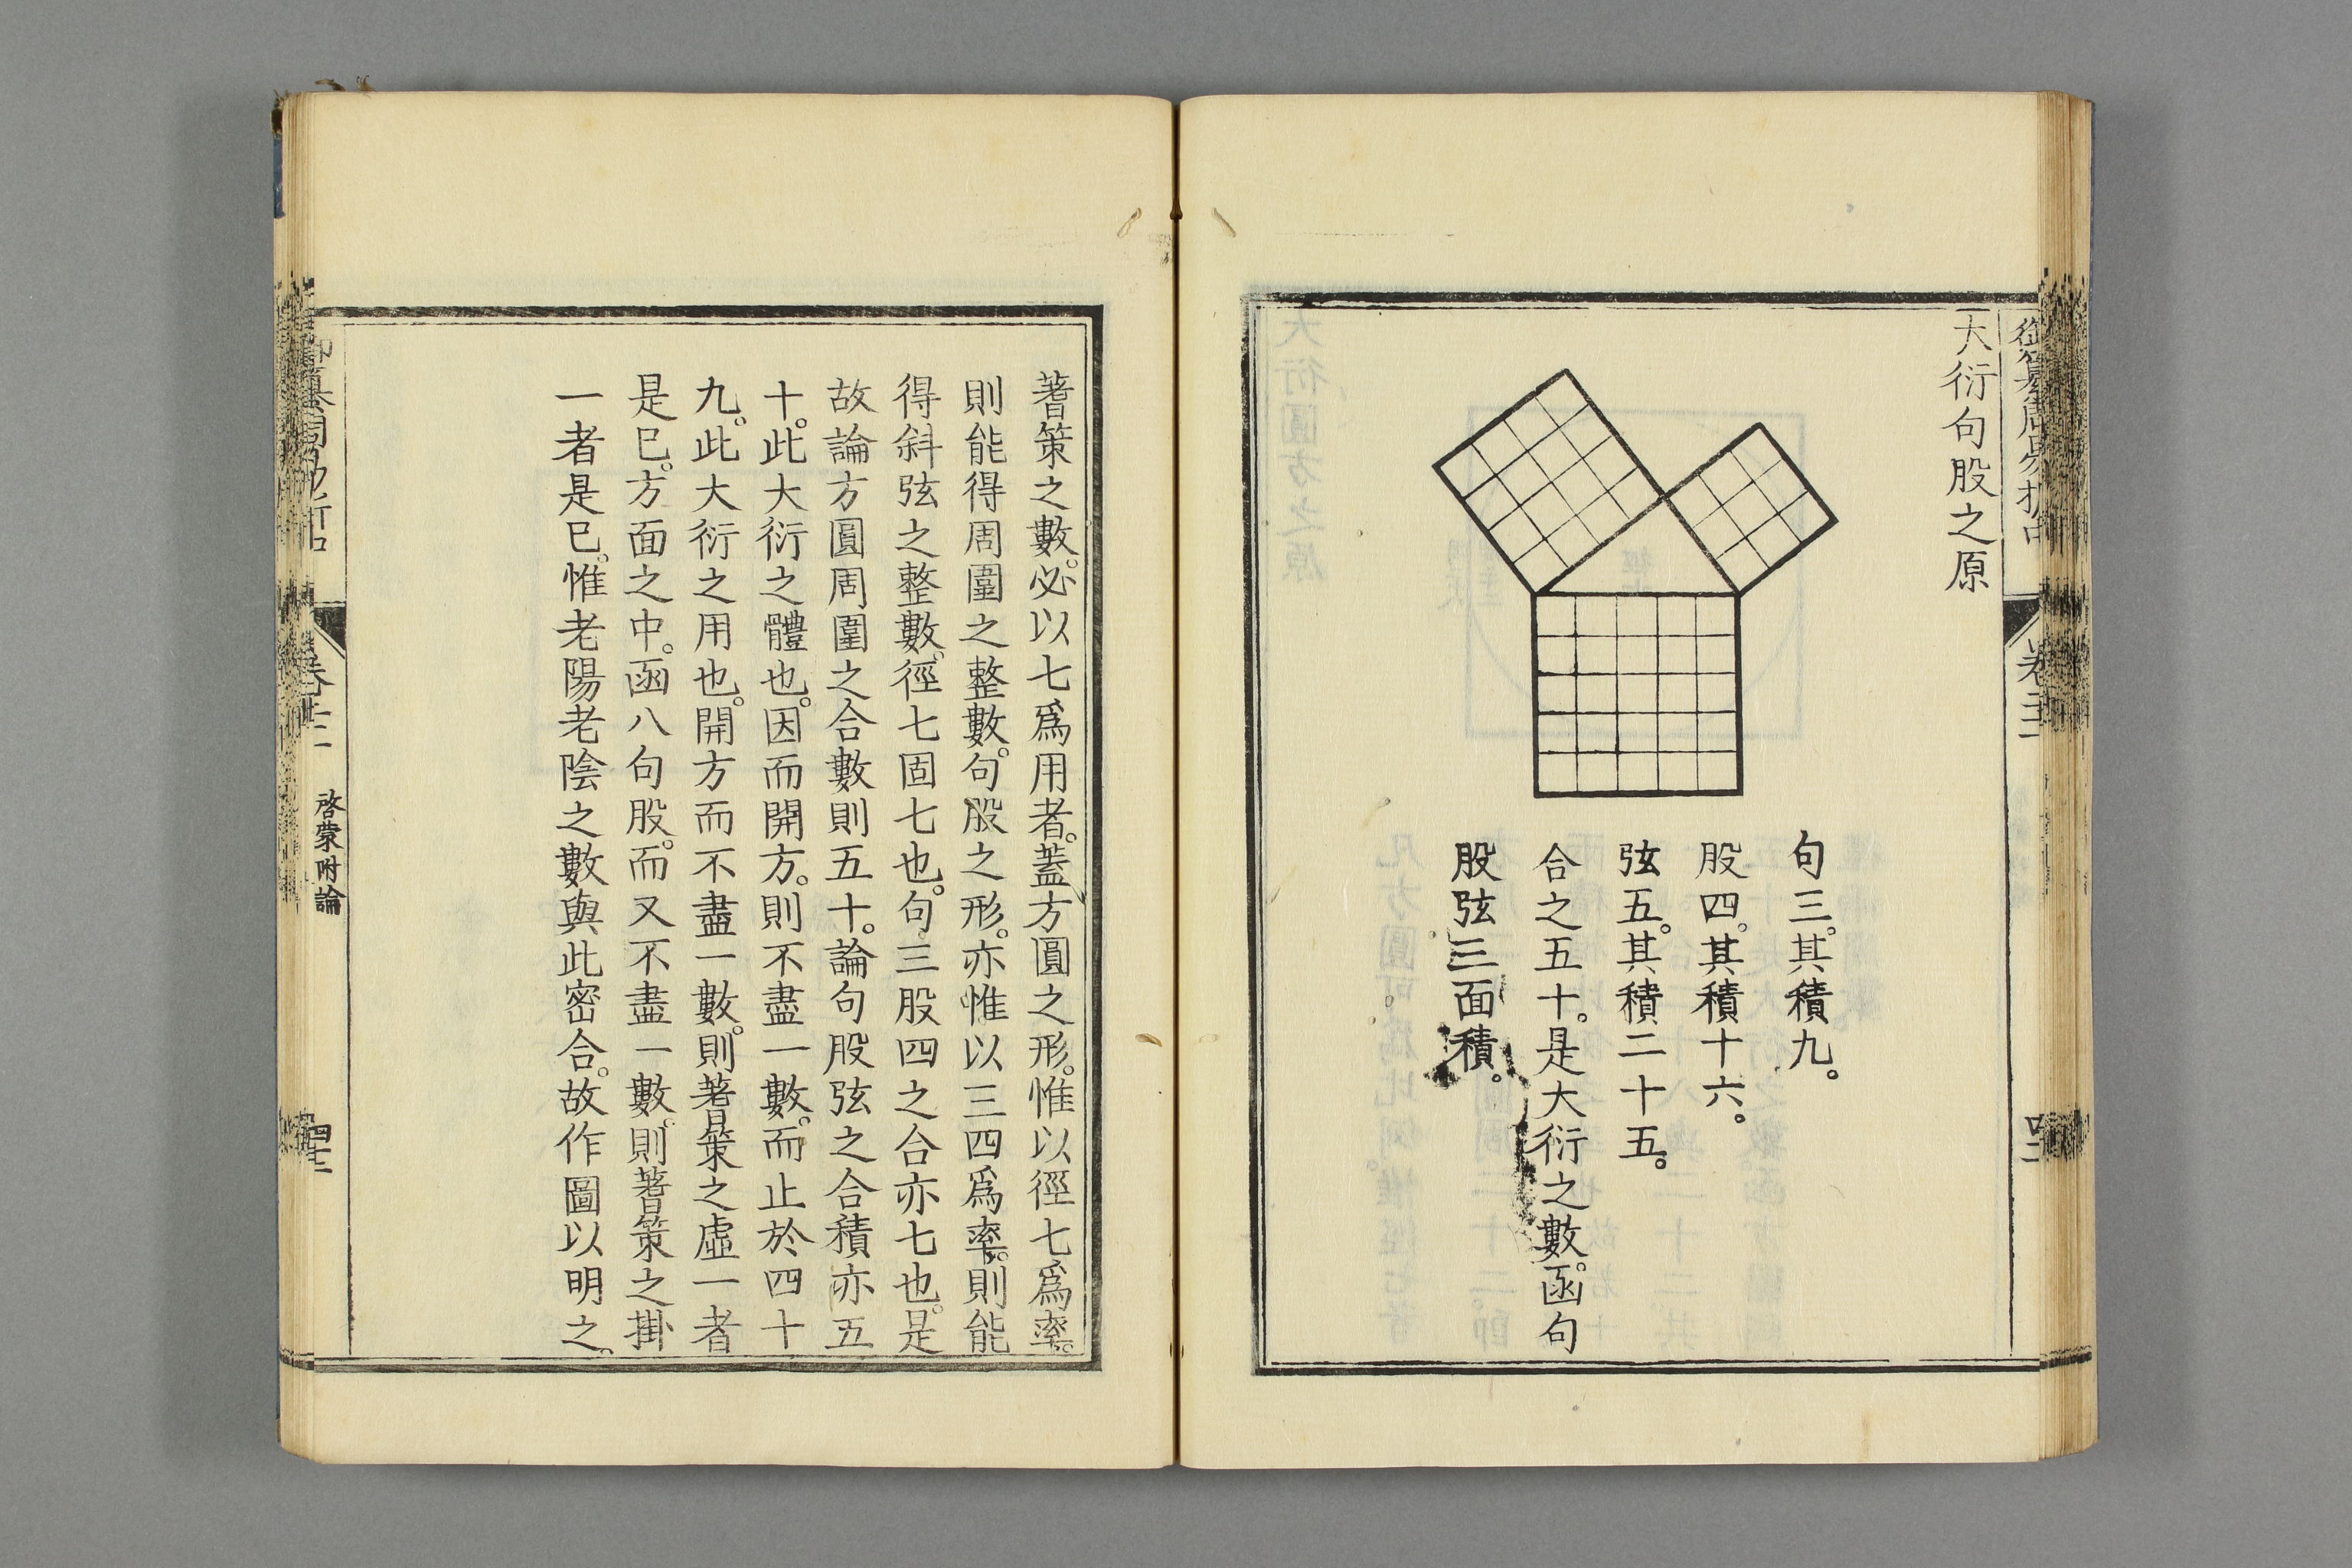 大衍句股之原
句三。其積九。
股四。其積十六。
弦五。其積二十五。
合之五十。是大衍之數。函句
股弦三面積。
蓍策之數。必以七爲用者。蓋方圓之形。惟以徑七爲率。
則能得周圍之整數。句股之形。亦惟以三四爲率。則能
得斜弦之整數。徑七固七也。句三股四之合亦七也。是
故論方圓周圍之合數則五十。論句股弦之合積亦五
十。此大衍之體也。因而開方。則不盡一數。而止於四十
九。此大衍之用也。開方而不盡一數。則蓍策之虛一者
是已。方面之中。函八句股。而又不盡一數。則蓍策之掛
一者是已。惟老陽老陰之數與此密合。故作圖以明之。
啓蒙附論